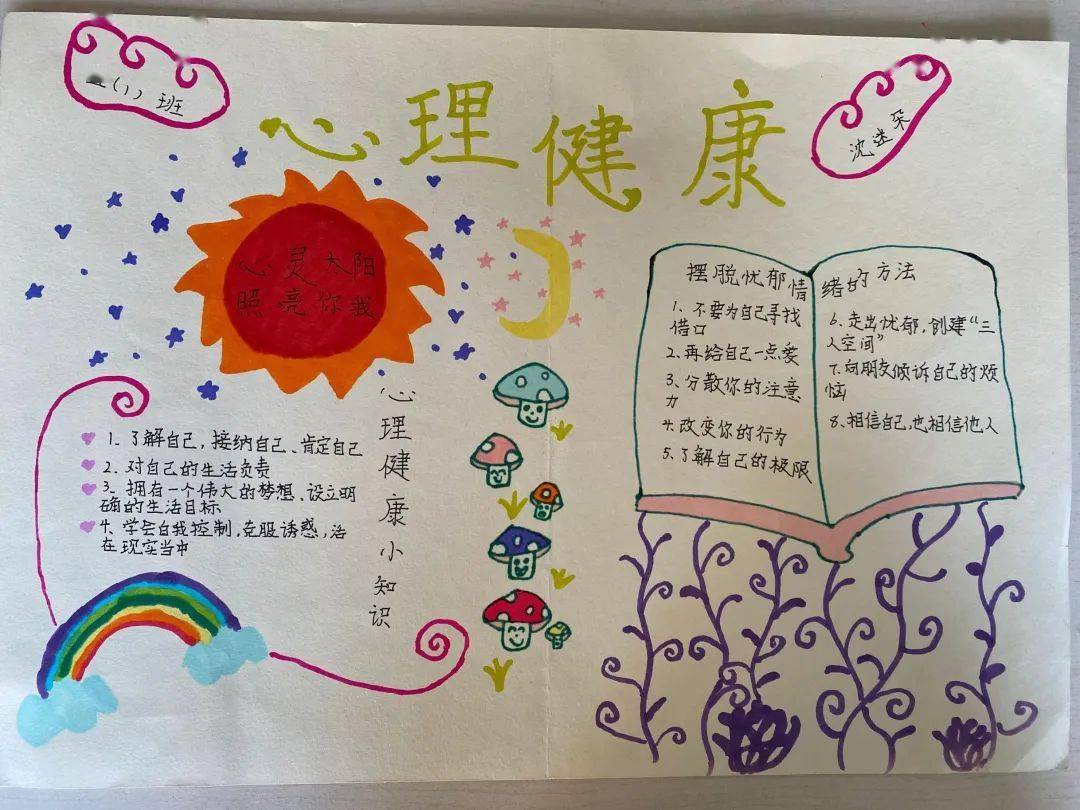 (1)班
心理健康
沈迷朵
心灵太阳
照亮你我
心理健康小知识
1、了解自己,接纳自己、肯定自己
2、对自己的生活负责
3、拥有一个伟大的梦想、设立明
确的生活目标
4、学会自我控制,克服诱惑,活
在现实当中
摆脱忧郁情绪的方法
1、不要为自己寻找
借口
2、再给自己一点爱
3、分散你的注意
力
4、改变你的行为
5、了解自己的极限
6、走出忧郁,创建“三
人空间”
7、向朋友倾诉自己的烦
恼
8、相信自己,也相信他人